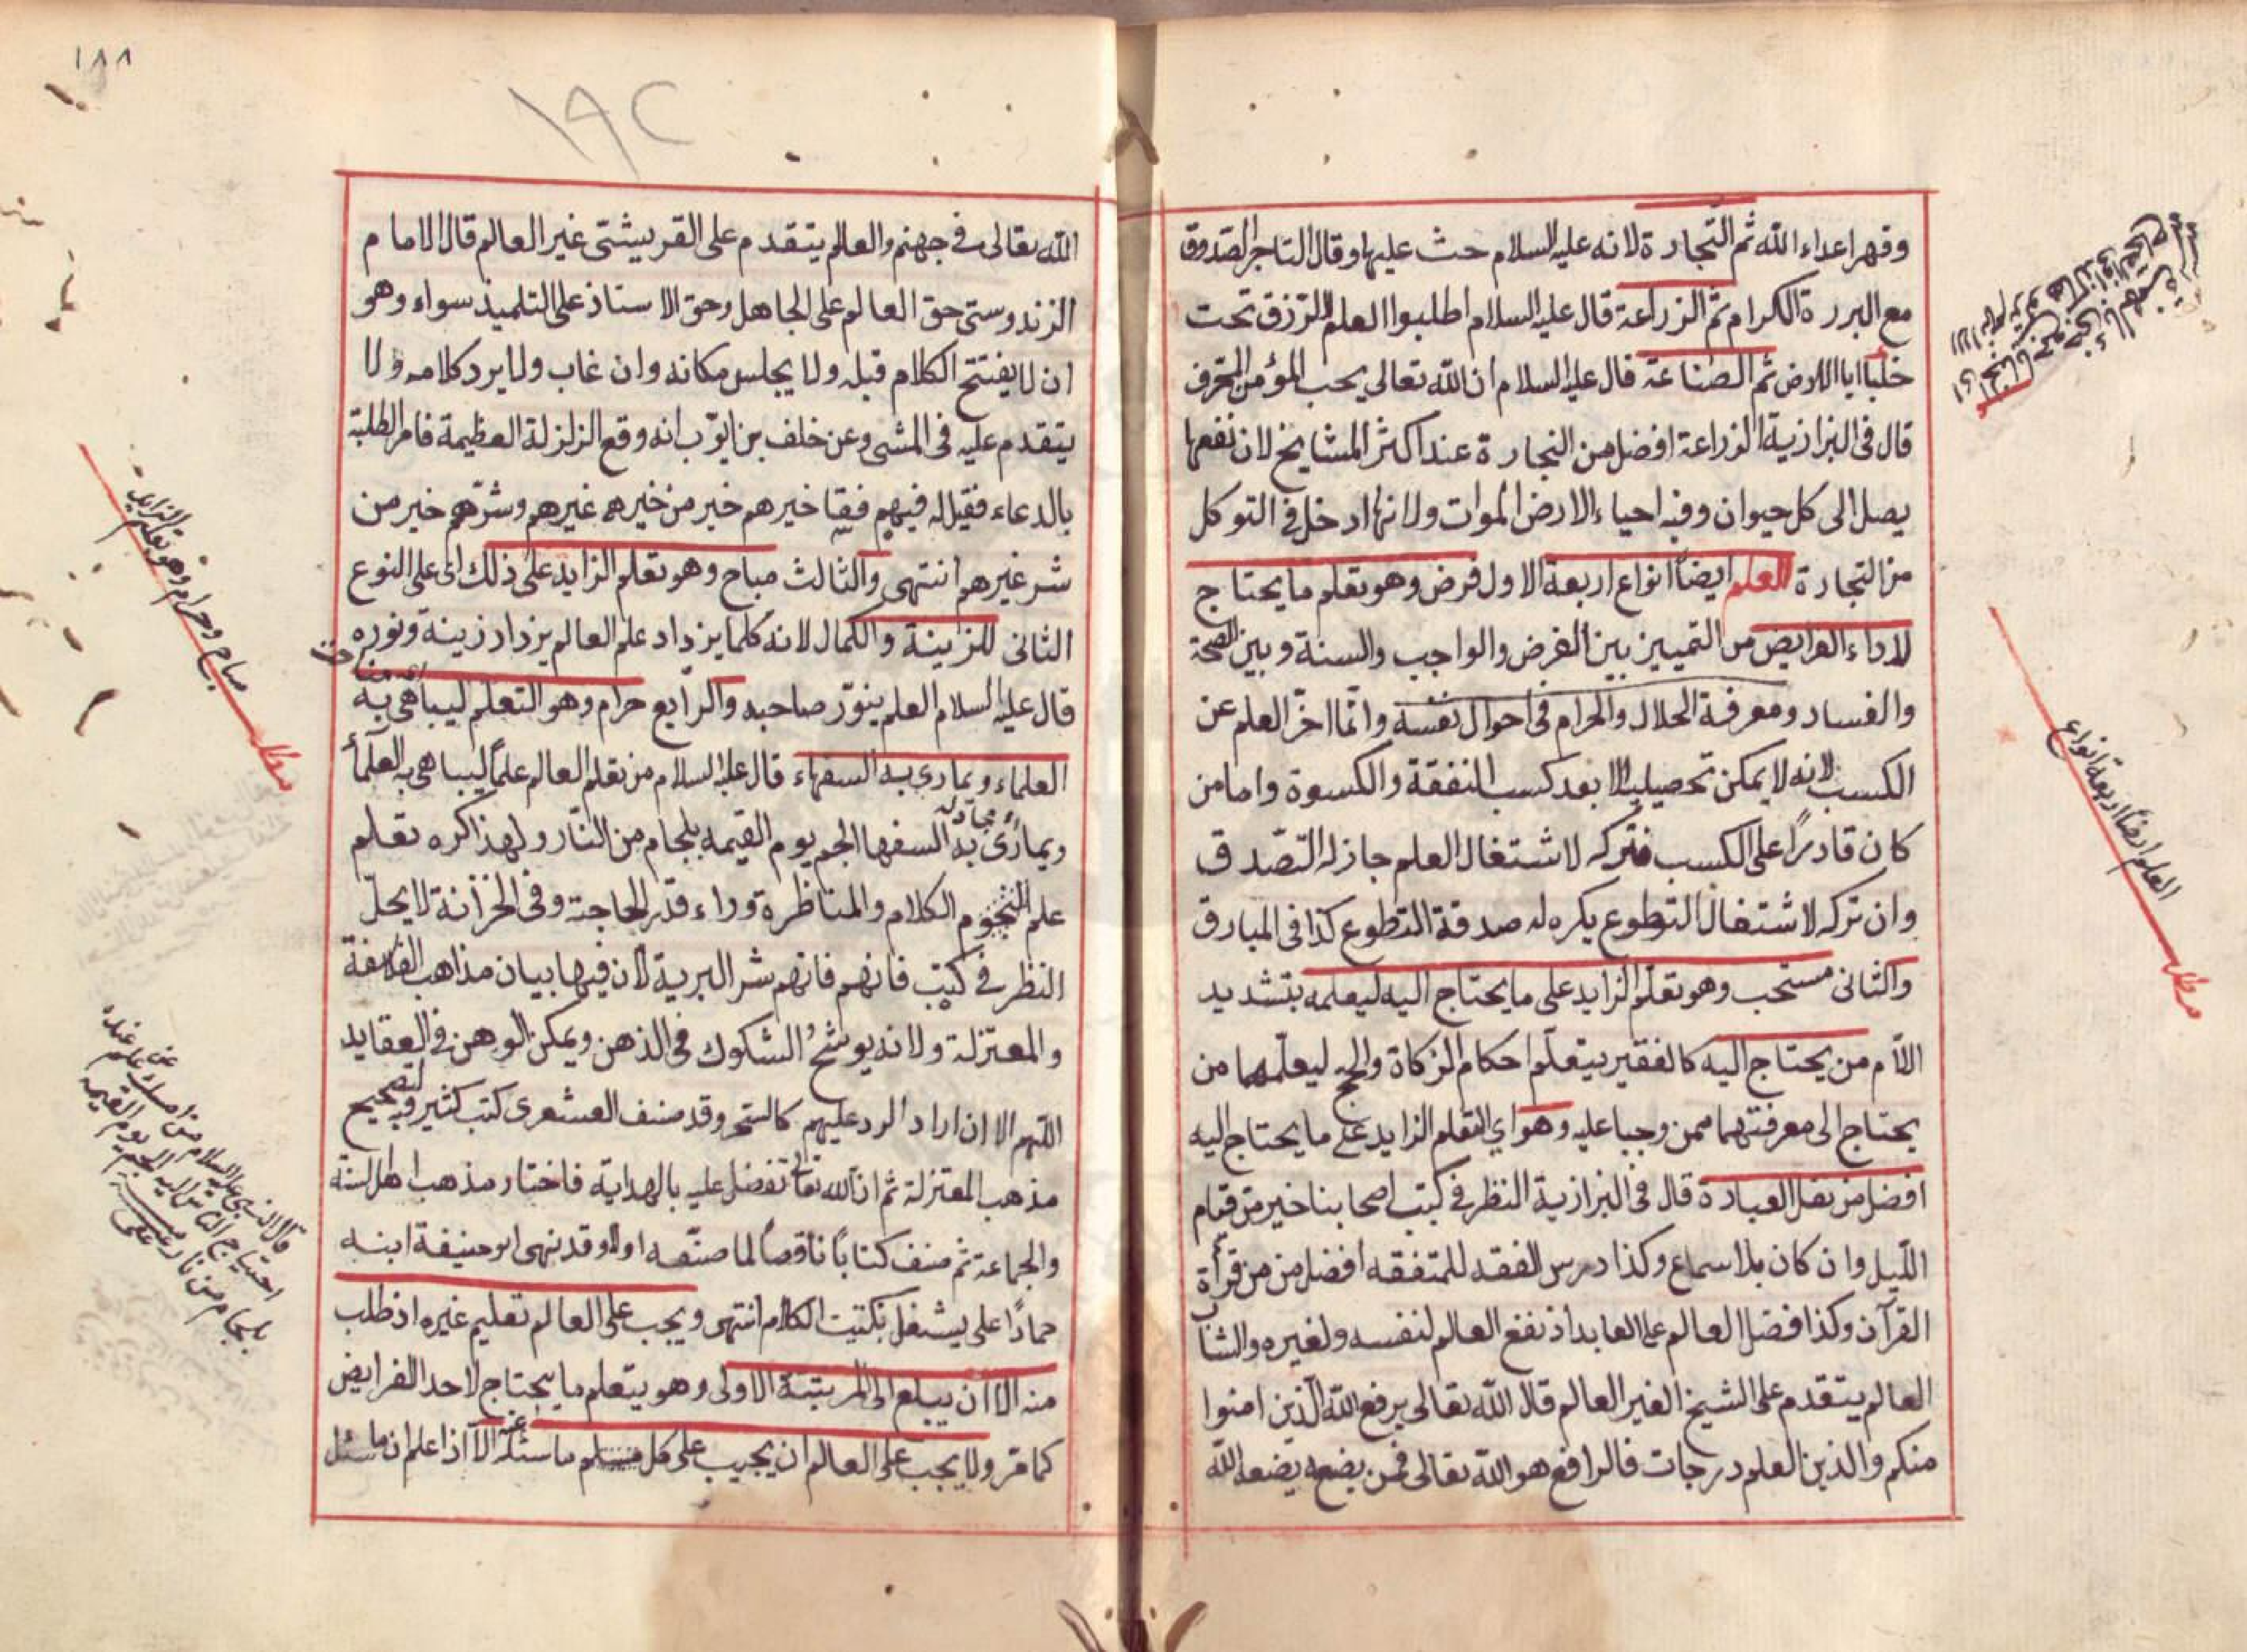 وقهر اعداء الله ثم التجارة لانه عليه السلام حث عليها وقال التاجر الصدوق
مع البررة الكرام ثم الزراعة قال عليه السلام اطلبوا العلم الرزق تحت
خبايا الارض ثم الصناعة قال عليه السلام ان الله تعالى يحب المؤمن المحترف
قال فى البزازية الزراعة افضل من التجارة عند اكثر المشايخ لان نفعها
يصل الى كل حيوان وفيه احياء الارض الموات ولانها ادخل فى التوكل
من التجارة العلم ايضاً انواع اربعة الاول فرض وهو تعلم ما يحتاج
لاداء الفرايض من التمييز بين الفرض والواجب والسنة وبين الصحة
والفساد ومعرفة الحلال والحرام فى احوال نفسه وانما اخر العلم عن
الكسب لانه لا يمكن تحصيله الا بعد كسب النفقة والكسوة واما من
كان قادرًا على الكسب فتركه لاشتغال العلم جاز له التصدق
وان تركه لاشتغال التطوع يكره له صدقة التطوع كذا فى المبارق
والثانى مستحب وهو تعلم الزايد على ما يحتاج اليه ليعلمه بتشديد
اللام من يحتاج اليه كالفقير يتعلم احكام الزكاة والحج ليعلمهما من
يحتاج الى معرفتهما ممن وجبا عليه وهو اي التعلم الزايد على ما يحتاج اليه
افضل من نفل العبادة قال فى البزازية النظر فى كتب اصحابنا خير من قيام
الليل وان كان بلا سماع وكذا درس الفقه للمتفقه افضل من من قرأة
القرآن وكذا فضل العالم على العابد اذ نفع العالم لنفسه ولغيره والشاب
العالم يتقدم على الشيخ الغير العالم قال الله تعالى يرفع الله الذين امنوا
منكم والذين العلم درجات فالرافع هو الله تعالى فمن يضعه يضعه الله
العلم ايضاً اربعة انواع
مطلب
١٨٨
١٩٢
الله تعالى فى جهنم والعالم يتقدم على القريشتى غير العالم قال الامام
الزندوستى حق العالم على الجاهل وحق الاستاذ على التلميذ سواء وهو
ان لا يفتتح الكلام قبله ولا يجلس مكانه وان غاب ولا يرد كلامه ولا
يتقدم عليه فى المشى وعن خلف بن ايوب انه وقع الزلزلة العظيمة فامر الطلبة
بالدعاء فقيل له فيهم فقا خيرهم خير من خيرهم غيرهم وشرهم خير من
شر غيرهم انتهى والثالث مباح وهو تعلم الزايد على ذلك اى على النوع
الثانى للزينة والكمال لانه كلما يزداد علم العالم يزداد زينة ونوره
قال عليه السلام العلم ينور صاحبه والرابع حرام وهو التعلم ليباهى به
العلماء ويمارى به السفهاء قال عليه السلام من تعلم العالم علماً ليباهى به العلمأ
ويمارى به السفها الجم يوم القيمه بلجام من النار ولهذا كره تعلم
علم النجوم الكلام والمناظرة وراء قدر الحاجة وفى الخزانة لا يحل
النظر فى كتب فانهم فانهم شر البرية لان فيها بيان مذاهب الفلاسفة
والمعتزلة ولانه يوشح الشكوك فى الذهن ويمكن الوهن فى العقايد
اللهم الا ان اراد الرد عليهم كالسحر وقد صنف العشعرى كتب كثير وفيه لتصحيح
مذهب المعتزلة ثم ان الله تعالى تفضل عليه بالهداية فاختار مذهب اهل السنة
والجماعة ثم صنف كتاباً ناقصاً لما صنفه اولا وقد نهى ابو حنيفة ابنه
حمادًا على يشتغل بكتيت الكلام انتهى ويجب على العالم تعليم غيره اذ طلب
منه الا ان يبلع الى المرتبة الاولى وهو يتعلم ما يحتاج لاحد الفرايض
كما مر ولا يجب على العالم ان يجيب على كل ما سئله عنه الا اذا علم ان ما سئل
مباح وحرام وهو تعلم الزايد
مطلب
قال النبى عليه السلام من امسك علم عنده
احتياج الناس اليه الجم يوم القيمه
بلجام من نار